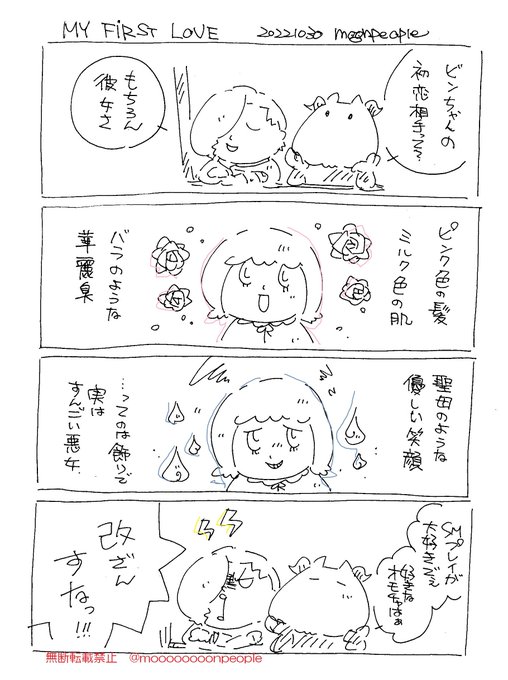 MY FiRST LOVE 20221030 moonpeople
ビンちゃんの
初恋相手って?
もちろん
彼女さ
ピンク色の髪
ミルク色の肌
バラのような
華麗臭
聖母のような
優しい笑顔
…ってのは飾りで
実は
すんごい悪女
SMプレイが
大好きでぇ
好きな
オモチャはぁ
改ざん
すなっ!!!
無断転載禁止 @moooooooonpeople